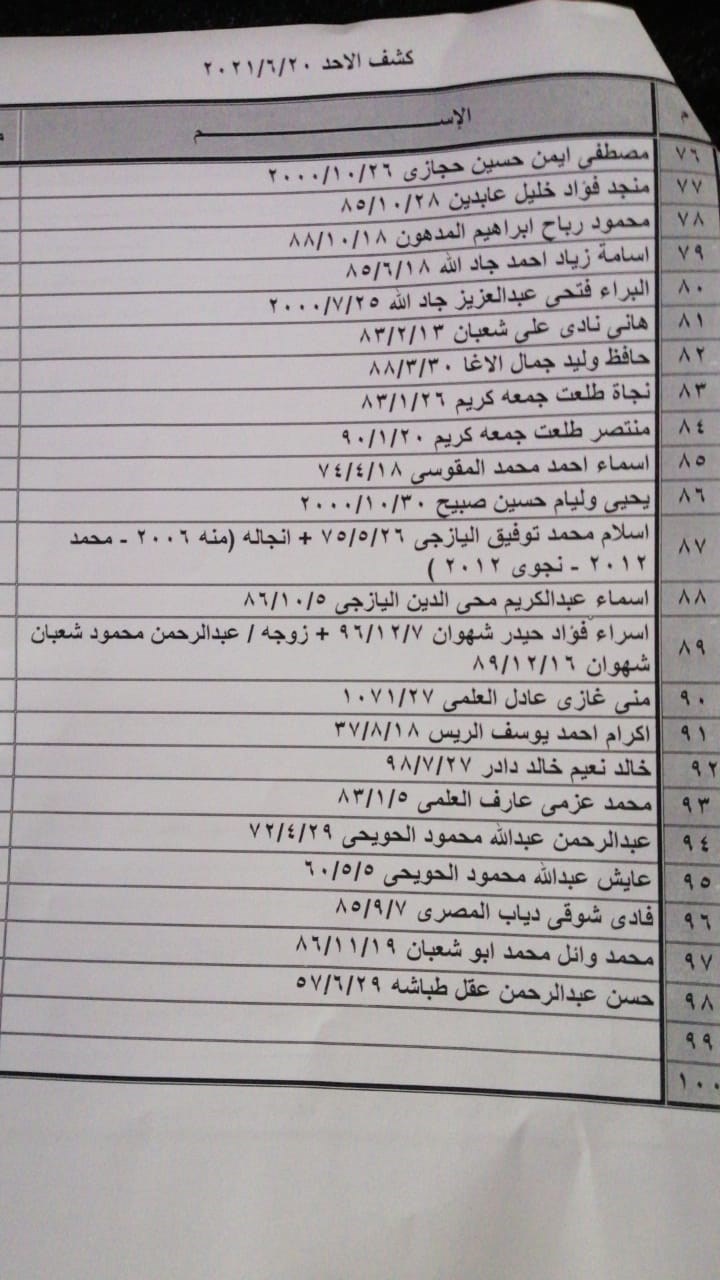 كشف الاحد ٢٠٢١/٦/٢٠
م الإســـــــم
٧٦ مصطفى ايمن حسين حجازى ٢٠٠٠/١٠/٢٦
٧٧ منجد فؤاد خليل عابدين ٨٥/١٠/٢٨
٧٨ محمود رباح ابراهيم المدهون ٨٨/١٠/١٨
٧٩ اسامة زياد احمد جاد الله ٨٥/٦/١٨
٨٠ البراء فتحى عبدالعزيز جاد الله ٢٠٠٠/٧/٢٥
٨١ هانى نادى على شعبان ٨٣/٢/١٣
٨٢ حافظ وليد جمال الاغا ٨٨/٣/٣٠
٨٣ نجاة طلعت جمعه كريم ٨٣/١/٢٦
٨٤ منتصر طلعت جمعه كريم ٩٠/١/٢٠
٨٥ اسماء احمد محمد المقوسى ٧٤/٤/١٨
٨٦ يحيى وليام حسين صبيح ٢٠٠٠/١٠/٣٠
٨٧ اسلام محمد توفيق اليازجى ٧٥/٥/٢٦ + انجاله (منه ٢٠٠٦ - محمد
٢٠١٢ - نجوى ٢٠١٢ )
٨٨ اسماء عبدالكريم محى الدين اليازجى ٨٦/١٠/٥
٨٩ اسراء فؤاد حيدر شهوان ٩٦/١٢/٧ + زوجه / عبدالرحمن محمود شعبان
شهوان ٨٩/١٢/١٦
٩٠ منى غازى عادل العلمى ١٠٧١/٢٧
٩١ اكرام احمد يوسف الريس ٣٧/٨/١٨
٩٢ خالد نعيم خالد دادر ٩٨/٧/٢٧
٩٣ محمد عزمى عارف العلمى ٨٣/١/٥
٩٤ عبدالرحمن عبدالله محمود الحويحى ٧٢/٤/٢٩
٩٥ عايش عبدالله محمود الحويحى ٦٠/٥/٥
٩٦ فادى شوقى دياب المصرى ٨٥/٩/٧
٩٧ محمد وائل محمد ابو شعبان ٨٦/١١/١٩
٩٨ حسن عبدالرحمن عقل طباشه ٥٧/٦/٢٩
٩٩
١٠٠